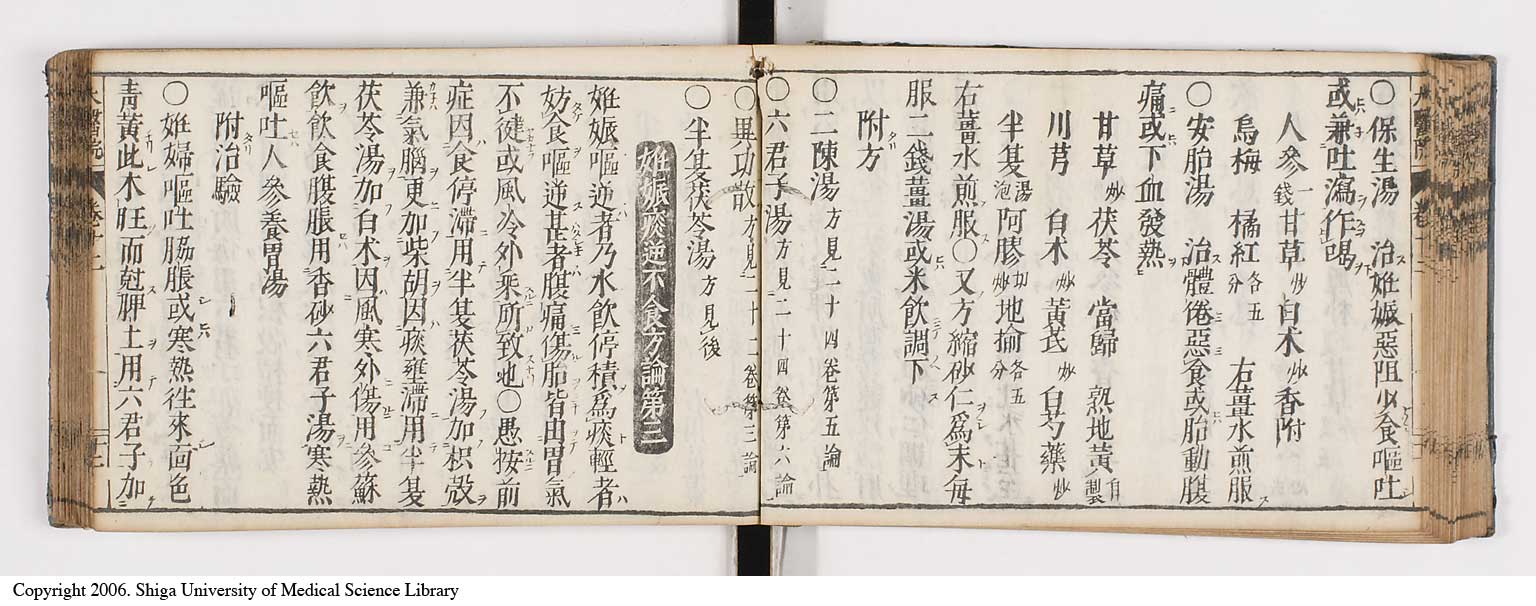 ○保生湯　治姙娠惡阻少食嘔吐
或兼吐瀉作嘔
人參一錢　甘草炒　白术炒　香附
烏梅　橘紅各五分　右薑水煎服
○安胎湯　治體倦惡食或胎動腹
痛或下血發熱
甘草炒　茯苓　當歸　熟地黃自製
川芎　白术炒　黃芪炒　白芍藥炒
半夏湯泡　阿膠切炒　地榆各五分
右薑水煎服○又方縮砂仁爲末每
服二錢薑湯或米飲調下
附方
○二陳湯方見二十四卷第五論
○六君子湯方見二十四卷第六論
○異功散方見二十二卷第三論
○半夏茯苓湯方見後
姙娠痰逆不食方論第三
姙娠嘔逆者乃水飲停積爲痰輕者
妨食嘔逆甚者腹痛傷胎皆由胃氣
不徤或風冷外乘所致也○愚按前
症因食停滯用半夏茯苓湯加枳殼
兼氣腦更加柴胡因痰壅滯用半夏
茯苓湯加白术因風寒外傷用參蘇
飲飲食腹脹用香砂六君子湯寒熱
嘔吐人參養胃湯
附治驗
○姙婦嘔吐脇脹或寒熱徃來面色
靑黃此木旺而尅脾土用六君子加
Copyright 2006. Shiga University of Medical Science Library